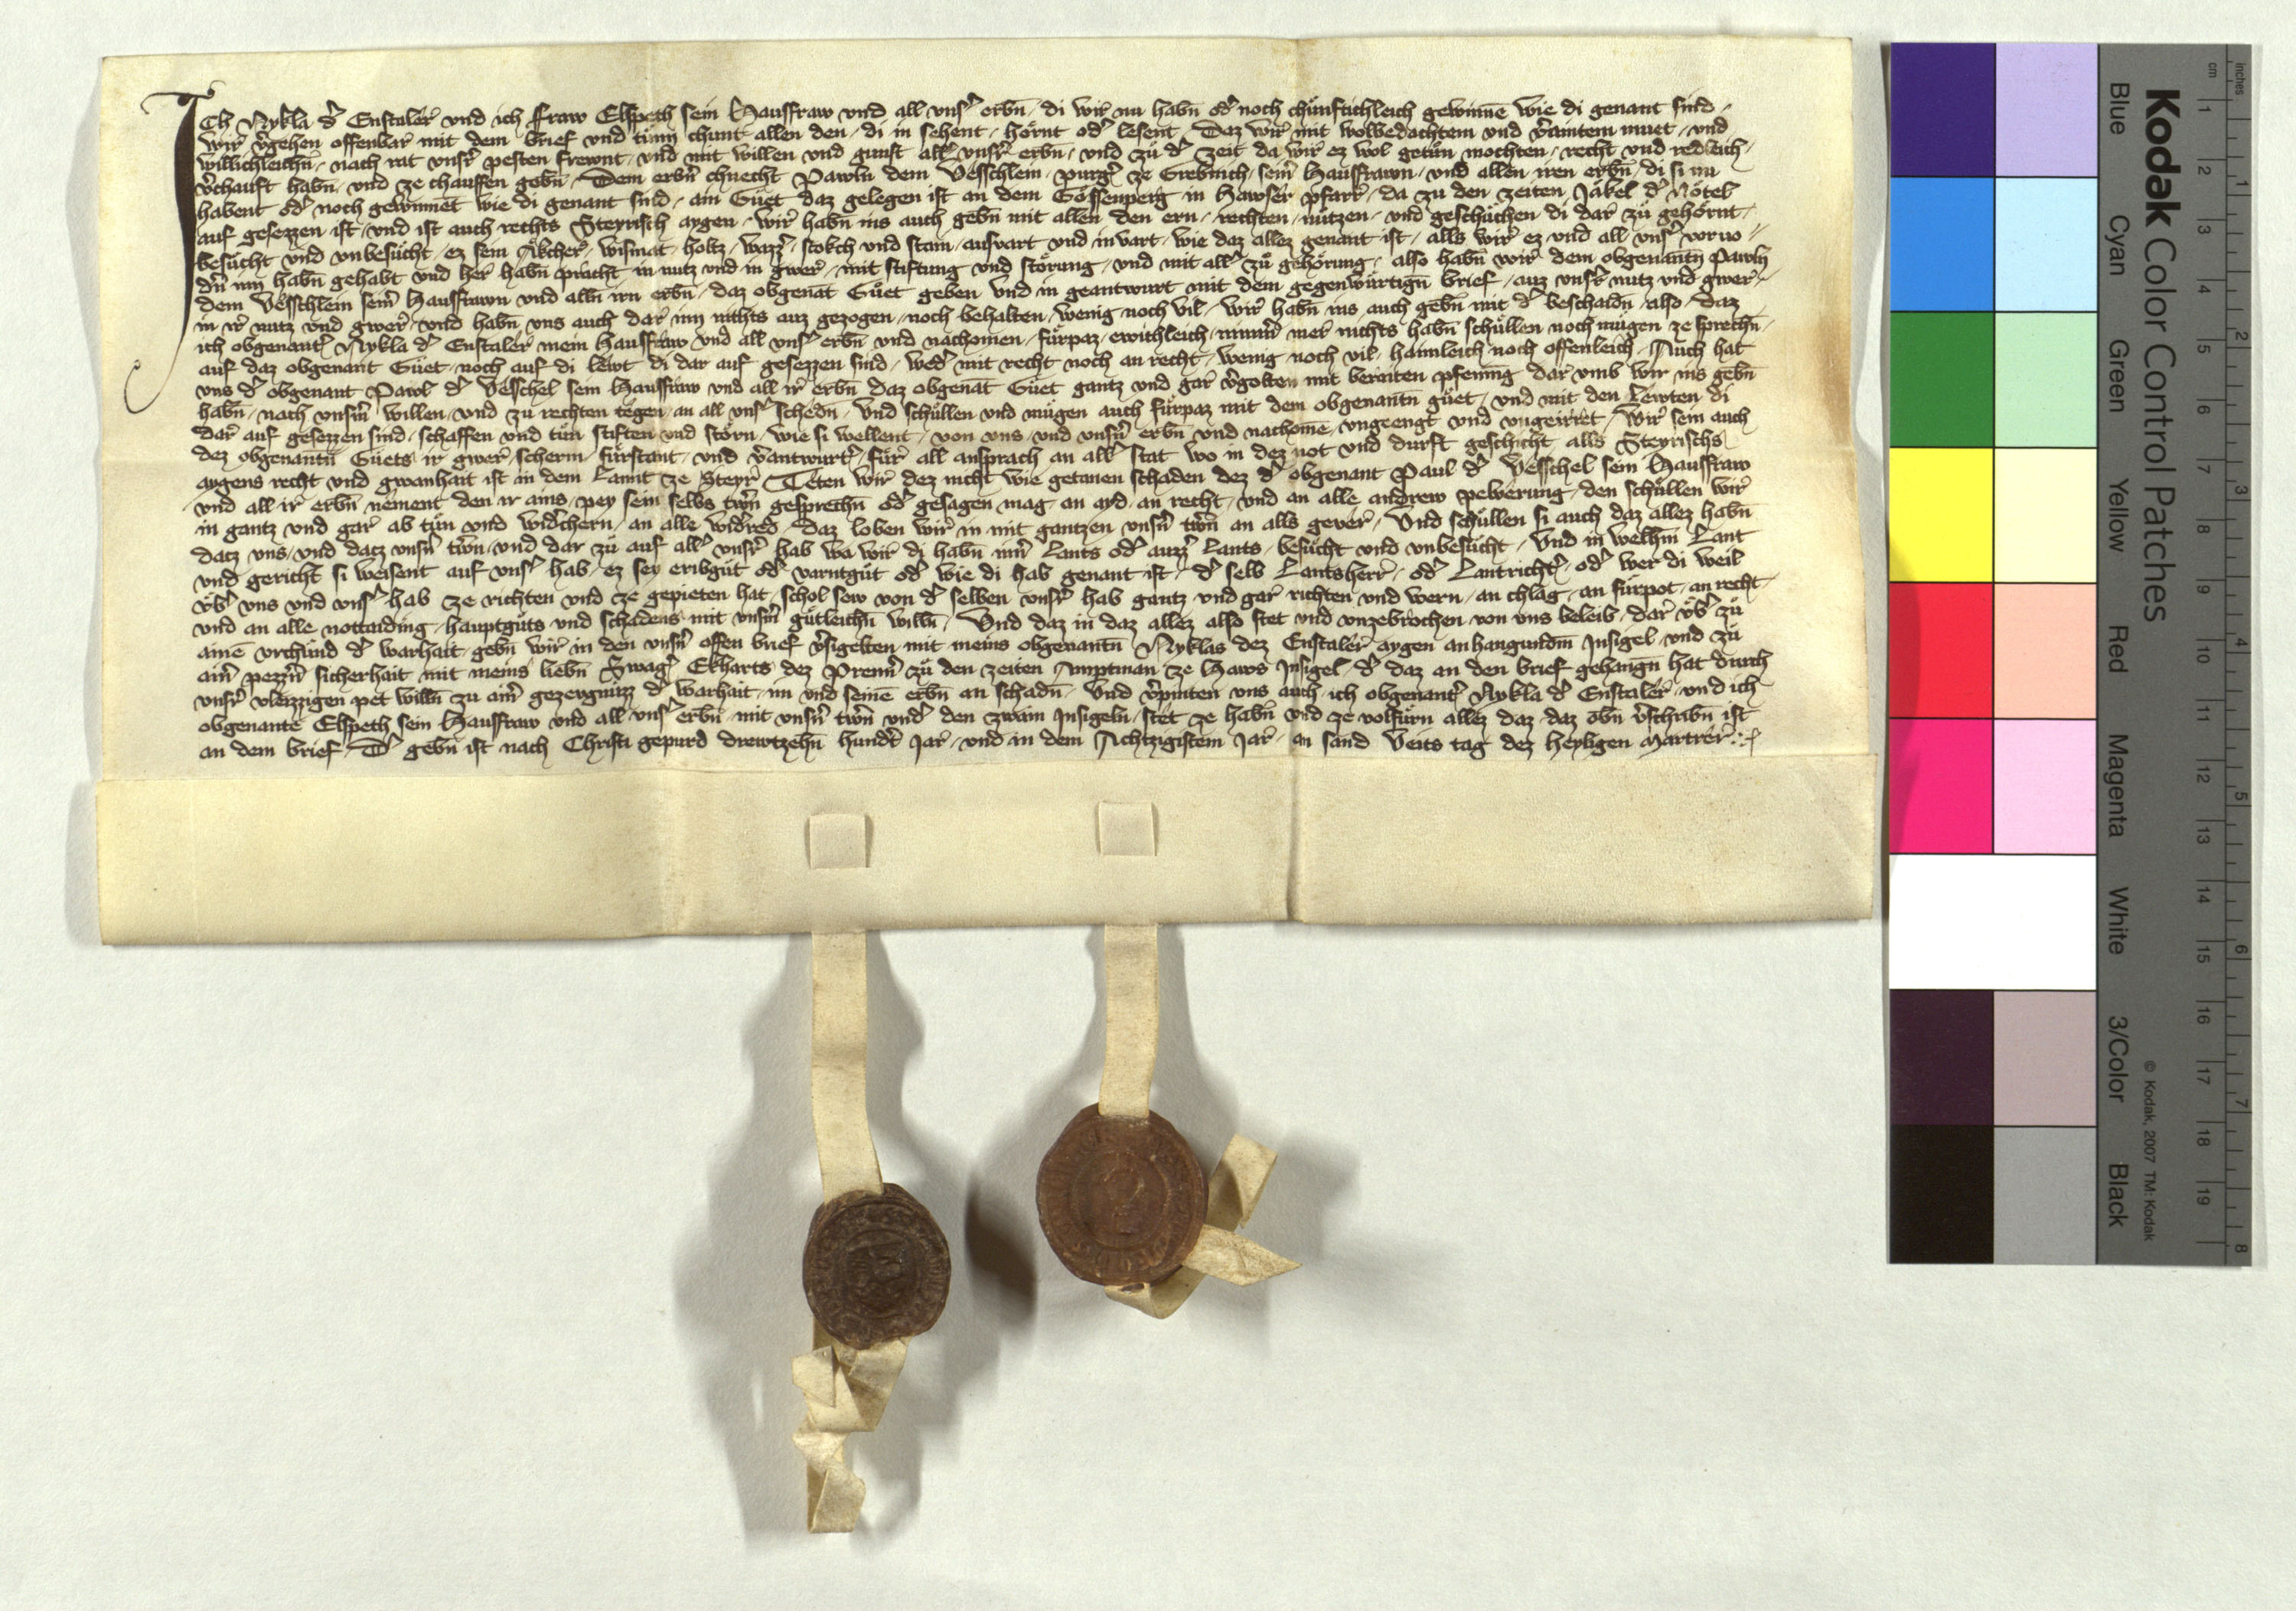 Ich Nykla d᷑ Enstaler und ich ffraw Elspeth sein Hausfraw vnd all vns᷑ erbn̄ · di wir nu habn̄ od᷑ noch chünftichleich gewinnē wie di genant sind ·
wir v᷑gehen offenbar mit dem brief vnd tünn chunt allen den · di in sehent · hörnt od᷑ lesent · Daz wir mit wolbedachtem und v᷑aintem muet · vnd
willichleichn̄ · nach rat vnsr᷑ pesten frewnt · vnd mit willen vnd gunst all᷑ vnsr᷑ erbn̄ · vnd zů d᷑ zeit da wir ez wol getůn mochten · recht vnd redleich ·
v᷑chauft habn̄ · vnd ze chauffen gebn̄ · Dem erbn̄ chnecht Pawln dem Vësschlein · purg᷑ ze Grebnich · sein᷑ Hausfrawn · vnd allen iren erbn̄ · di si nu
habent od᷑ noch gewinnēt wie di genant sind · ain Gůet daz gelegen ist an dem Gössenperg · in Hawser pfarr · da zu den zeiten Jäkel d᷑ Nötel
auf gesezzen ist · vnd ist auch rechts Steyrisch aygen · wir habn̄ ins auch gebn̄ mit allen den ern · rechten · nützen · vnd geschüchen di dar zů gehörnt ·
besůcht vnd vnbesůcht · ez sein Äkcher · wismat · holtz · wazz᷑ · stokch vnd stain · ausvart vnd invart · wie daz allez genant ist · alls wir ez vnd all vns᷑ vorvo//
dn̄ inn habn̄ gehabt vnd her habn̄ pracht in nutz vnd in gwer · mit stiftung vnd störung · vnd mit all᷑ zů gehörung · also habn̄ wir dem obgenantn̄ Pawln
dem Vësschlein sein᷑ Hausfrawn vnd alln̄ irn erbn̄ · daz obgenāt Gůet geben vnd in geantwurt mit dem gegenwürtign̄ brief · auz vnsr᷑ nutz vnd gwer ·
in ir᷑ nutz vnd gwer · vnd habn̄ vns auch dar inn nichts auz gezogen · noch behalten · wenig noch vil · wir habn̄ ins auch gebn̄ mit d᷑ beschaidn̄ · also daz
ich obgenant᷑ Nykla d᷑ Enstaler mein Hausfraw vnd all vns᷑ erbn̄ vnd nachomen · fürpaz · ewichleich · nimm᷑ mer nichts habn̄ schüllen noch mügen ze sprechn̄ ·
auf daz obgenant Gůet · noch auf di lewt di dar auf gesezzen sind · wed᷑ mit recht noch an recht · wenig noch vil · haimleich noch offenleich · Auch hat
vns d᷑ obgenant Pawl d᷑ Vësschel sein Hausfraw vnd all ir erbn̄ daz obgenāt Gůet gantz vnd gar v᷑golten mit beraiten pfenning dar vmb wir ins gebn̄
habn̄ · nach vnsm᷑ willen · vnd zu rechten tëgen · an all vns᷑ schëdn̄ · Vnd schüllen vnd mügen auch fürpaz mit dem obgenantn̄ gůet · vnd mit den Lewten di
dar auf gesezzen sind · schaffen vnd tůn stiften vnd störn · wie si wellent · von vns · vnd vnsn᷑ erbn̄ vnd nachomē · vngeengt vnd vngeirret · Wir sein auch
dez obgenantn̄ Gůets ir gwer · scherm · fürstant · vnd v᷑antwurt᷑ · für all ansprach an all᷑ stat wo in dez not vnd durft geschicht alls Steyrischs
aygens recht vnd gwanhait ist in dem Lannt ze Steyr · Tëten wir dez nicht wie getanen schaden dez d᷑ obgenant Paul d᷑ Vësschel sein Hausfraw
vnd all ir erbn̄ nëment den ir ains · pey sein selbs trwn̄ gesprechn̄ od᷑ gesagen mag · an ayd · an recht · vnd an alle andrew pewërung · den schüllen wir
in gantz vnd gar ab tůn vnd wid᷑chern · an alle wid᷑red · daz loben wir in mit gantzen vnsn᷑ trwn̄ an alls gever · Vnd schüllen si auch daz allez habn̄
datz vns · vnd datz vnsn᷑ trwn̄ · vnd dar zů auf all᷑ vnsr᷑ hab wa wir di habn̄ inn᷑ Lants od᷑ auzz᷑ Lants · besůcht vnd vnbesůcht · Vnd in welhm̄ Lant
vnd gericht si weisent auf vns᷑ hab · ez sey eribgůt od᷑ varntgůt od᷑ wie di hab genant ist · d᷑ selb Lantsherr · od᷑ Lantricht᷑ · od᷑ wer di weil
üb᷑ vns vnd vns᷑ hab ze richten vnd ze gepieten hat · schol sew von d᷑ selben vnsr᷑ hab gantz vnd gar richten vnd wern · an chlag · an fürpot · an recht ·
vnd an alle nottaiding · hauptgůts vnd schadens · mit vnsm᷑ gůtleichn̄ willn̄ · Vnd daz in daz allez also stet vnd vnzebrochen von vns beleib · dar üb᷑ zů
ainē vrchünd d᷑ warhait · gebn̄ wir in den vnsn᷑ offen brief v᷑sigelten mit meins obgenantn̄ Nyklas dez Enstaler aygen anhangundm̄ Insigel · vnd zů
ain᷑ pezzn᷑ sicherhait · mit meins liebn̄ Swag᷑ Ekharts dez Prenn᷑ zů den zeiten Amptman ze Haws Insigel · d᷑ daz an den brief gehangn̄ hat durch
vnsr᷑ vleizzigen pet willn̄ zu ain᷑ gezeugnuzz d᷑ warhait · im vnd seinē erbn̄ an schadn̄ · Vnd v᷑pinten vns auch · ich obgenant᷑ Nykla d᷑ Enstaler · vnd ich
obgenantē Elspeth sein Hausfraw vnd all vns᷑ erbn̄ · mit vnsn᷑ trwn̄ vnd᷑ den zwain Insigeln · stët ze habn̄ vnd ze volfürn allez daz · daz obn̄ v᷑schribn̄ ist
an dem brief · D᷑ gebn̄ ist nach Christi gepurd drewtzehn̄ hund᷑t Jar · vnd in dem Achtzigistem Jar · an sand Veits tag dez heyligen Martrer
Kodak Color Control Patches
Blue Cyan Green Yellow Red Magenta White 3/Color Black
© Kodak, 2007 TM: Kodak
cm 1 2 3 4 5 6 7 8 9 10 11 12 13 14 15 16 17 18 19
inches 1 2 3 4 5 6 7 8